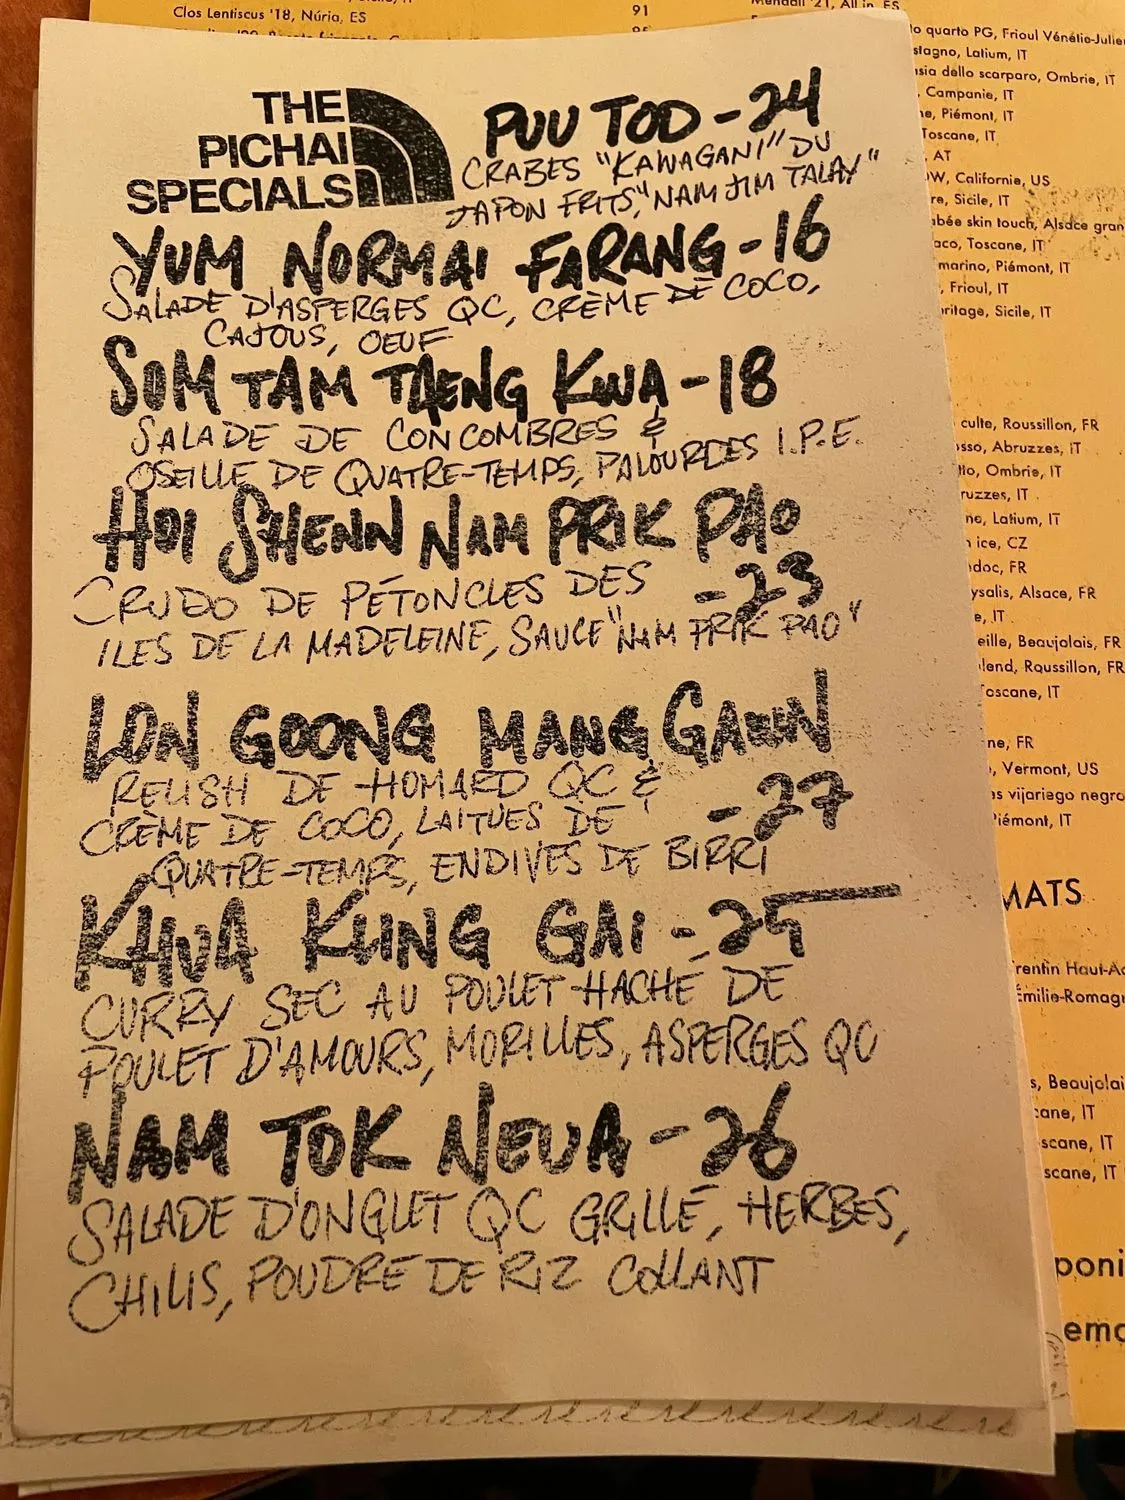 Clos Lentiscus '18, Núria, ES
91
THE
PICHAI
SPECIALS
PUU TOD - 24
CRABES "KAWAGANI" DU
JAPON FRITS, "NAM JIM TALAY"
YUM NORMAI FARANG - 16
SALADE D'ASPERGES QC, CRÈME DE COCO,
CAJOUS, OEUF
SOM TAM TAENG KWA - 18
SALADE DE CONCOMBRES &
OSEILLE DE QUATRE-TEMPS, PALOURDES I.P.E.
HOI SHENN NAM PRIK PAO
- 23
CRUDO DE PÉTONCLES DES
ILES DE LA MADELEINE, SAUCE "NAM PRIK PAO"
LON GOONG MANG GAWN
- 27
RELISH DE HOMARD QC &
CRÈME DE COCO, LAITUES DE
QUATRE-TEMPS, ENDIVES DE BIRRI
KHUA KLING GAI - 25
CURRY SEC AU POULET HACHÉ DE
POULET D'AMOURS, MORILLES, ASPERGES QC
NAM TOK NEUA - 26
SALADE D'ONGLET QC GRILLÉ, HERBES,
CHILIS, POUDRE DE RIZ COLLANT
quarto PG, Frioul Vénétie-Julie
Latium, IT
dello scarparo, Ombrie, IT
Campanie, IT
Piémont, IT
Toscane, IT
AT
Californie, US
Sicile, IT
skin touch, Alsace gran
Toscane, IT
Piémont, IT
Frioul, IT
Sicile, IT
culte, Roussillon, FR
Abruzzes, IT
Ombrie, IT
IT
Latium, IT
ice, CZ
FR
Alsace, FR
IT
Beaujolais, FR
Roussillon, FR
Toscane, IT
FR
Vermont, US
vijariego negro
Piémont, IT
MATS
Haut-A
Émilie-Romag
Beaujolai
IT
IT
IT